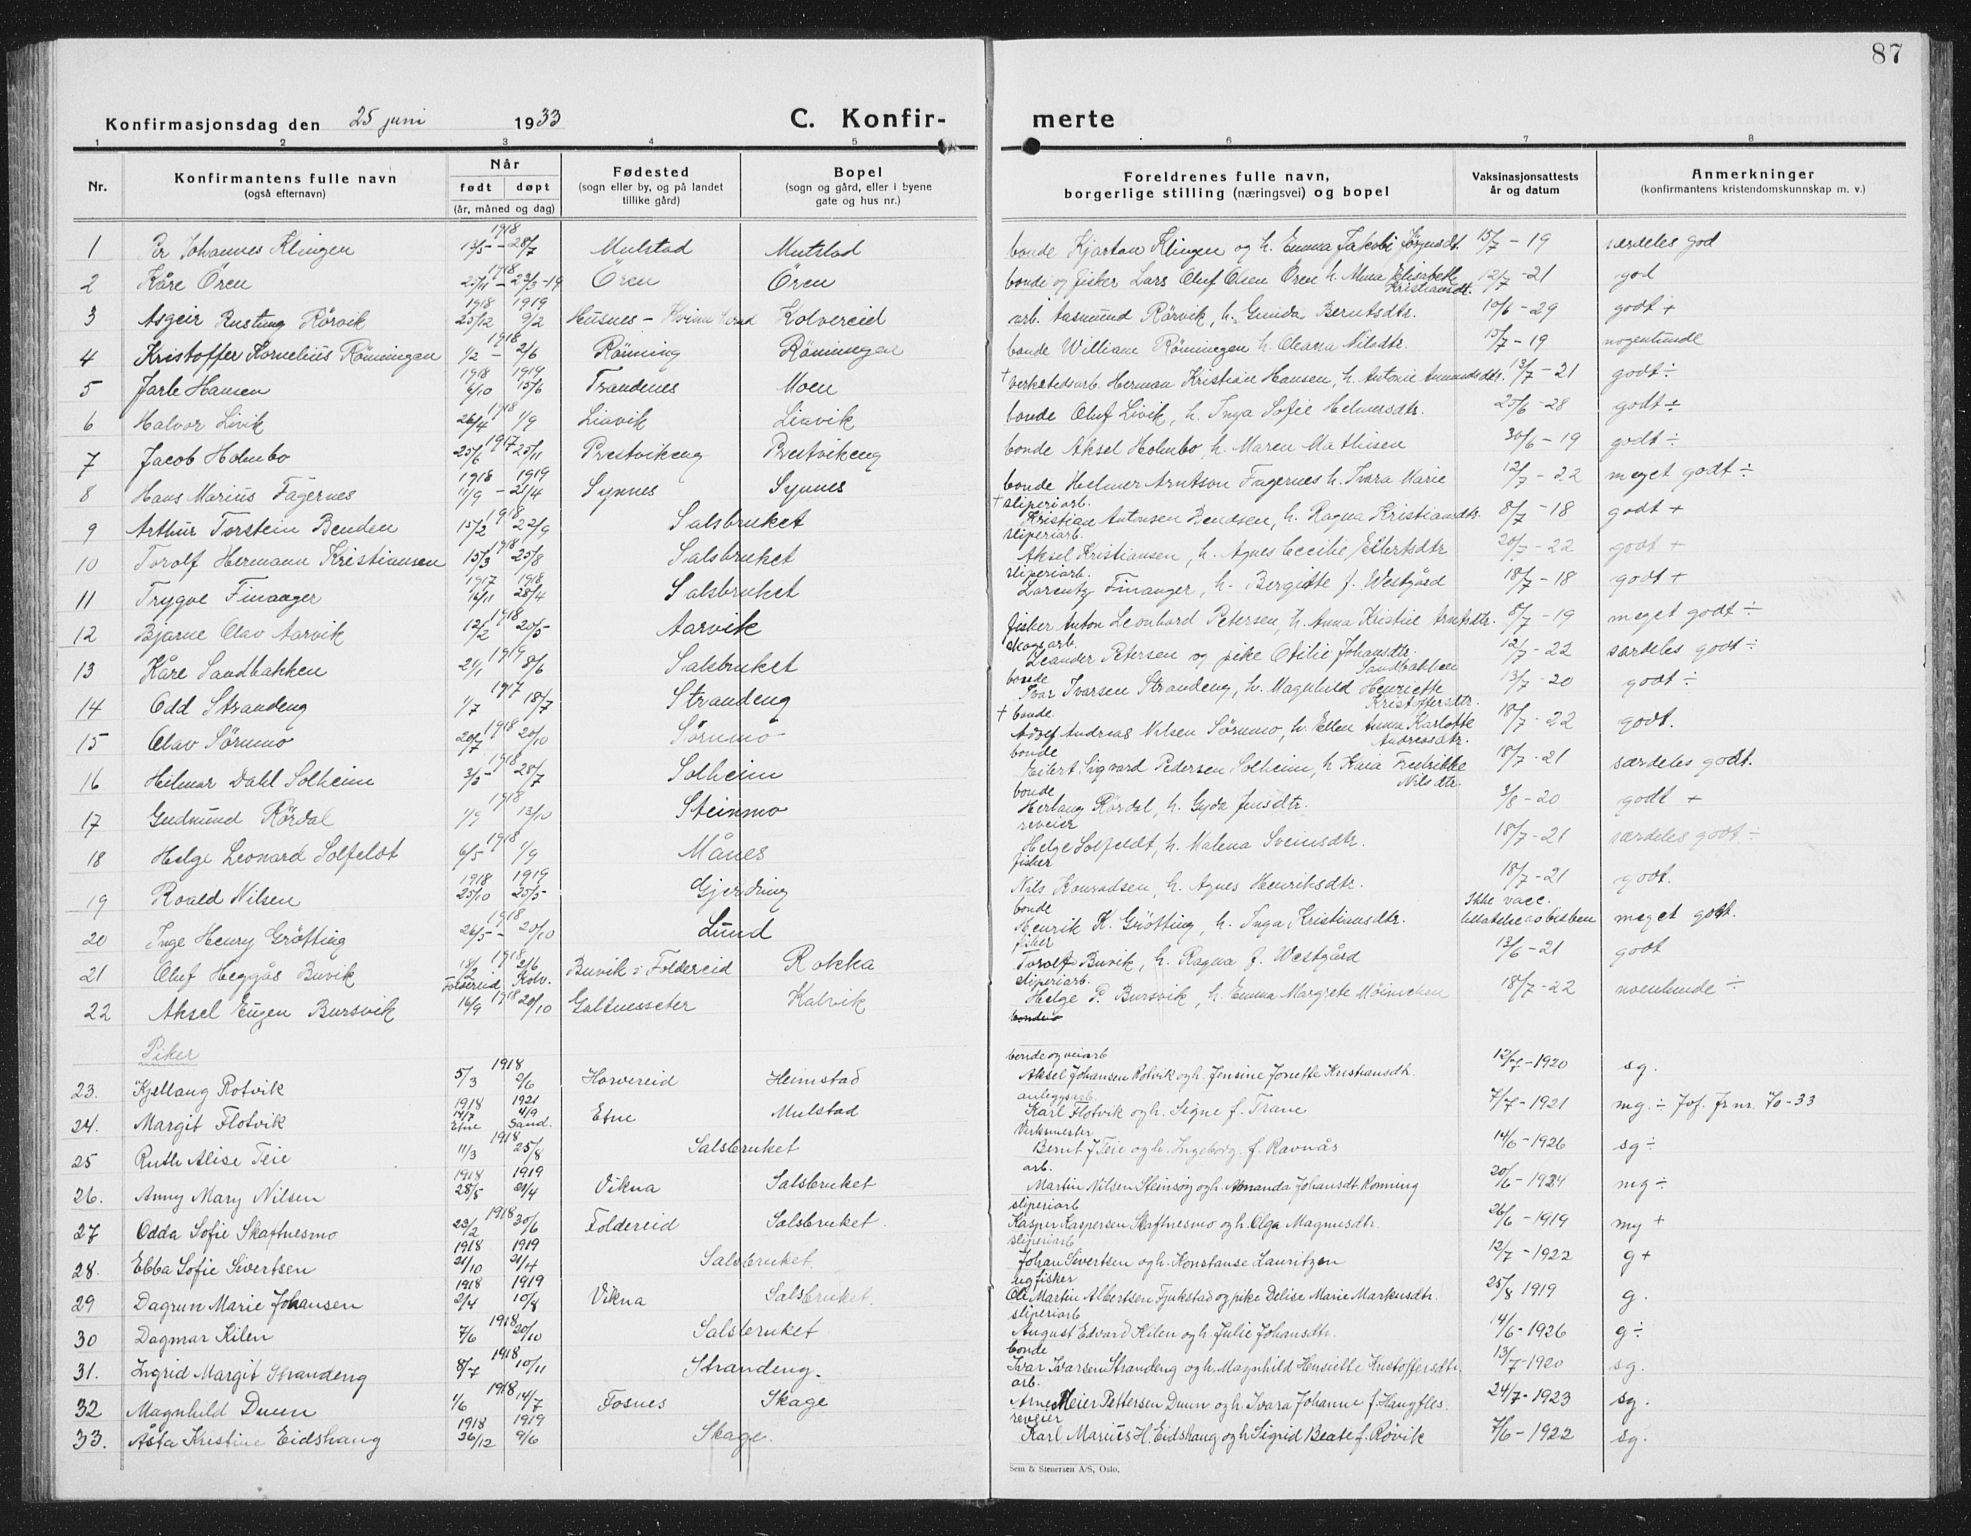 87
Konfirmasjonsdag den 25 juni 1933 C. Konfir- merte
1 2 3 4 5 6 7 8
Nr. Konfirmantens fulle navn (også efternavn) Når født døpt (år, måned og dag) Fødested (sogn eller by, og på landet tillike gård) Bopel (sogn og gård, eller i byene gate og hus nr.) Foreldrenes fulle navn, borgerlige stilling (næringsvei) og bopel Vaksinasjonsattests år og datum Anmerkninger (konfirmantens kristendomskunnskap m. v.)
1 Per Johannes Klingen 1918 13/5 - 28/7 Mulstad Mulstad bonde Kjartan Klingen og h. Emma Jakobi Jörgensdt. 15/7 - 19 særdeles god
2 Kåre Ören 1918 Ören Ören bonde og fisker Lars Oluf Olsen Ören h. Elisabeth Kristiansdt. 12/7 - 21 god
3 Asgeir Rustung Rörvik 1918 25/12 1919 9/2 Husnes - Kolvereid arb. Aasmund Rörvik, h. Gunda Berntsdtr. 10/6 - 29 godt +
4 Kristoffer Kornelius Rönningen 1918 1/2 - 2/6 Rönning Rönningen bonde William Rönningen h. Oleana Nilsdtr. 15/7 - 19 nogenlunde
5 Jarle Hansen 1918 6/10 1919 15/6 Trandenes Moen + verkstedsarb. Herman Kristian Hansen, h. Antonie Amundsdtr. 13/7 - 21 godt ÷
6 Halvor Livik 26/4 1918 1/9 Liavik Liavik bonde Oluf Livik, h. Inga Sofie Helmersdtr. 25/6 - 28 godt ÷
7 Jacob Holmbo 25/6 1917 25/11 Prestvikeng Prestvikeng bonde Aksel Holmbo h. Maren Mathisen 30/6 - 19 godt ÷
8 Hans Marius Fagernes 1918 11/9 - 1919 21/4 Synnes Synnes bonde Helmer Arntsen Fagernes h. Ivara Marie 12/7 - 22 meget godt ÷
9 Arthur Torstein Bendsen 15/2 1918 22/9 Salsbruket + sliperiarb. Kristian Antonsen Bendsen, h. Ragna Kristiansdtr. 8/7 - 18 godt +
10 Torolf Hermann Kristiansen 15/3 1918 25/8 Salsbruket sliperiarb. Aksel Kristiansen, h. Agnes Cecilie Eilertsdtr 20/7 - 22 godt +
11 Trygve Finanger 1917 16/11 1918 28/4 Salsbruket sliperiarb. Lorentz Finanger, h. Bergitte f. Westgård 18/7 - 18 godt +
12 Bjarne Olav Aarvik 12/2 1918 20/5 Aarvik fisker Anton Leonhard Petersen, h. Anna Kristine Arntsdtr. 8/7 - 19 meget godt ÷
13 Kåre Sandbakken 21/1 1919 8/6 Salsbruket skogsarb. Leander Petersen og pike Otilie Johansdtr. Sandbakken 12/7 - 22 særdeles godt ÷
14 Odd Strandeng 1/7 1917 18/7 Strandeng bonde Ivar Ivarsen Strandeng, h. Magnhild Henriette Kristoffersdtr. 13/7 - 20 godt ÷
15 Olav Sörumo 20/7 1918 20/10 Sörumo + bonde Adolf Andreas Nilsen Sörumo, h. Ellen Anna Karlotte Andreasdtr. 18/7 - 22 godt.
16 Hilmar Dahl Solheim 3/5 - 1918 28/7 Solheim bonde Eilert Sigvard Pedersen Solheim, h. Kaia Fredrikke Nilsdtr. 18/7 - 21 særdeles godt.
17 Gudmund Rördal 1/9 1918 13/10 Steinmo bonde Herlaug Rördal, h. Gyda Jensdtr. 3/8 - 20 godt +
18 Helge Leonard Solfeldt 6/5 1918 1/9 Månes reveier Helge Solfeldt, h. Malena Sveinsdtr. 18/7 - 21 særdeles godt ÷
19 Roald Nilsen 1918 25/10 1919 25/5 Gjerdring fisker Nils Konradsen, h. Agnes Henriksdtr. 18/7 - 21 godt.
20 Inge Henry Grötting 26/5 - 1918 20/10 Lund bonde Henrik K. Grötting, h. Inga Kristiansdtr. Ikke vacc. meget godt.
21 Oluf Heggås Buvik 18/2 1918 2/6 Foldereid Kolv. Buvik i Foldereid Rokka fisker Torolf Buvik, h. Ragna f. Westgård 13/6 - 21 godt
22 Aksel Eugen Bursvik 16/9 1918 20/10 Galtneseter Kalvik sliperiarb. Helge P. Bursvik, h. Emma Margrete Möinichen 18/7 - 22 noenlunde ÷
Piker
23. Kjellaug Rotvik 5/3 1918 2/6 Horvereid Heimstad bonde og veiarb Aksel Johansen Rotvik og h. Jensine Jonette Kristiansdtr. 12/7 - 1920 sg.
24. Margit Flotvik 1918 14/7 Etne 1921 4/9 Sand. Etne Mulstad anleggsarb. Karl Flotvik og h. Signe f. Trane 7/7 - 1921 mg. ÷ Jof. Jr nr. 70-33
25 Ruth Alise Teie 11/3 1918 25/8 Salsbruket Verksmester Bernt J Teie og h. Ingeborg f. Ravnås 14/6 - 1926 sg ÷
26. Anny Mary Nilsen 1918 28/5 1919 21/4 Vikna Salsbruket arb. Martin Nilsen Steinsöy og h. Amanda Johansdt Rönning 20/6 - 1924 mg ÷
27 Odda Sofie Skaftnesmo 23/2 1918 30/6 Foldereid Salsbruket. sliperiarb Kasper Kaspersen Skaftnesmo og h. Olga Magnusdtr. 26/6 - 1919 mg +
28. Ebba Sofie Sivertsen 1918 21/10 1919 21/4 Salsbruket. sliperiarb Johan Sivertsen og h. Konstanse Lauritzen 12/7 - 1922 g +
29 Dagrun Marie Johansen 1918 2/4 1919 10/8 Vikna Salsbruket. ug fisker Ole Martin Albertsen Fjukstad og pike Delise Marie Markusdtr. 25/8 1919 g.
30 Dagmar Kilen 7/6 1918 20/10 Salsbruket sliperiarb August Edvard Kilen og h. Julie Johansdtr. 14/6 - 1926 g ÷
31. Ingrid Margit Strandeng 8/7 1918 10/11 Strandeng. bonde Ivar Ivarsen Strandeng og h. Magnhild Henriette Kristoffersdtr. 13/7 - 1920 sg.
32 Magnhild Duun 1/6 1918 14/7 Fosnes Skage arb. Arne Meier Pettersen Duun og h. Ivara Johanne f. Haugfles 24/7 - 1923 sg.
33. Åsta Kristine Eidshaug 1918 26/12 1919 9/6 Skage. reveier Karl Marius H. Eidshaug og h Sigrid Beate f. Rövik 7/6 - 1922 sg.
Sem & Stenersen A/S, Oslo.